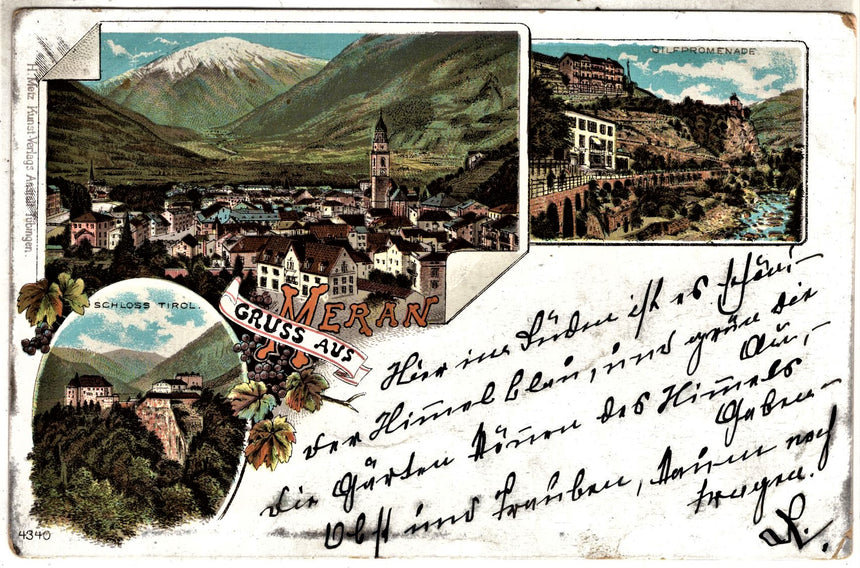 H. Metz Kunst-Verlags Anstalt Tübingen.
GILFPROMENADE
SCHLOSS TIROL.
GRUSS AUS
MERAN
Hier im Süden ist es schön, –
der Himmel blau, und grün die
Au, –
die Gärten können des Himmels
Gaben –
Obst und Trauben, kaum noch
tragen.
4340